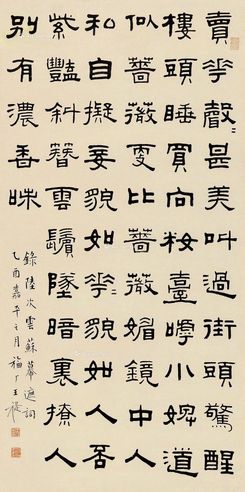 賣華聲甚美叫過街頭驚醒
樓頭睡買向粧臺嘑小婢道
似薔薇更比薔薇媚鏡中人
和自擬妾貌如花貌如人否
紫豔斜簪雲鬢墜暗裏撩人
別有濃香味
錄陸次雲蘇幕遮詞
乙酉嘉平之月福厂王禔